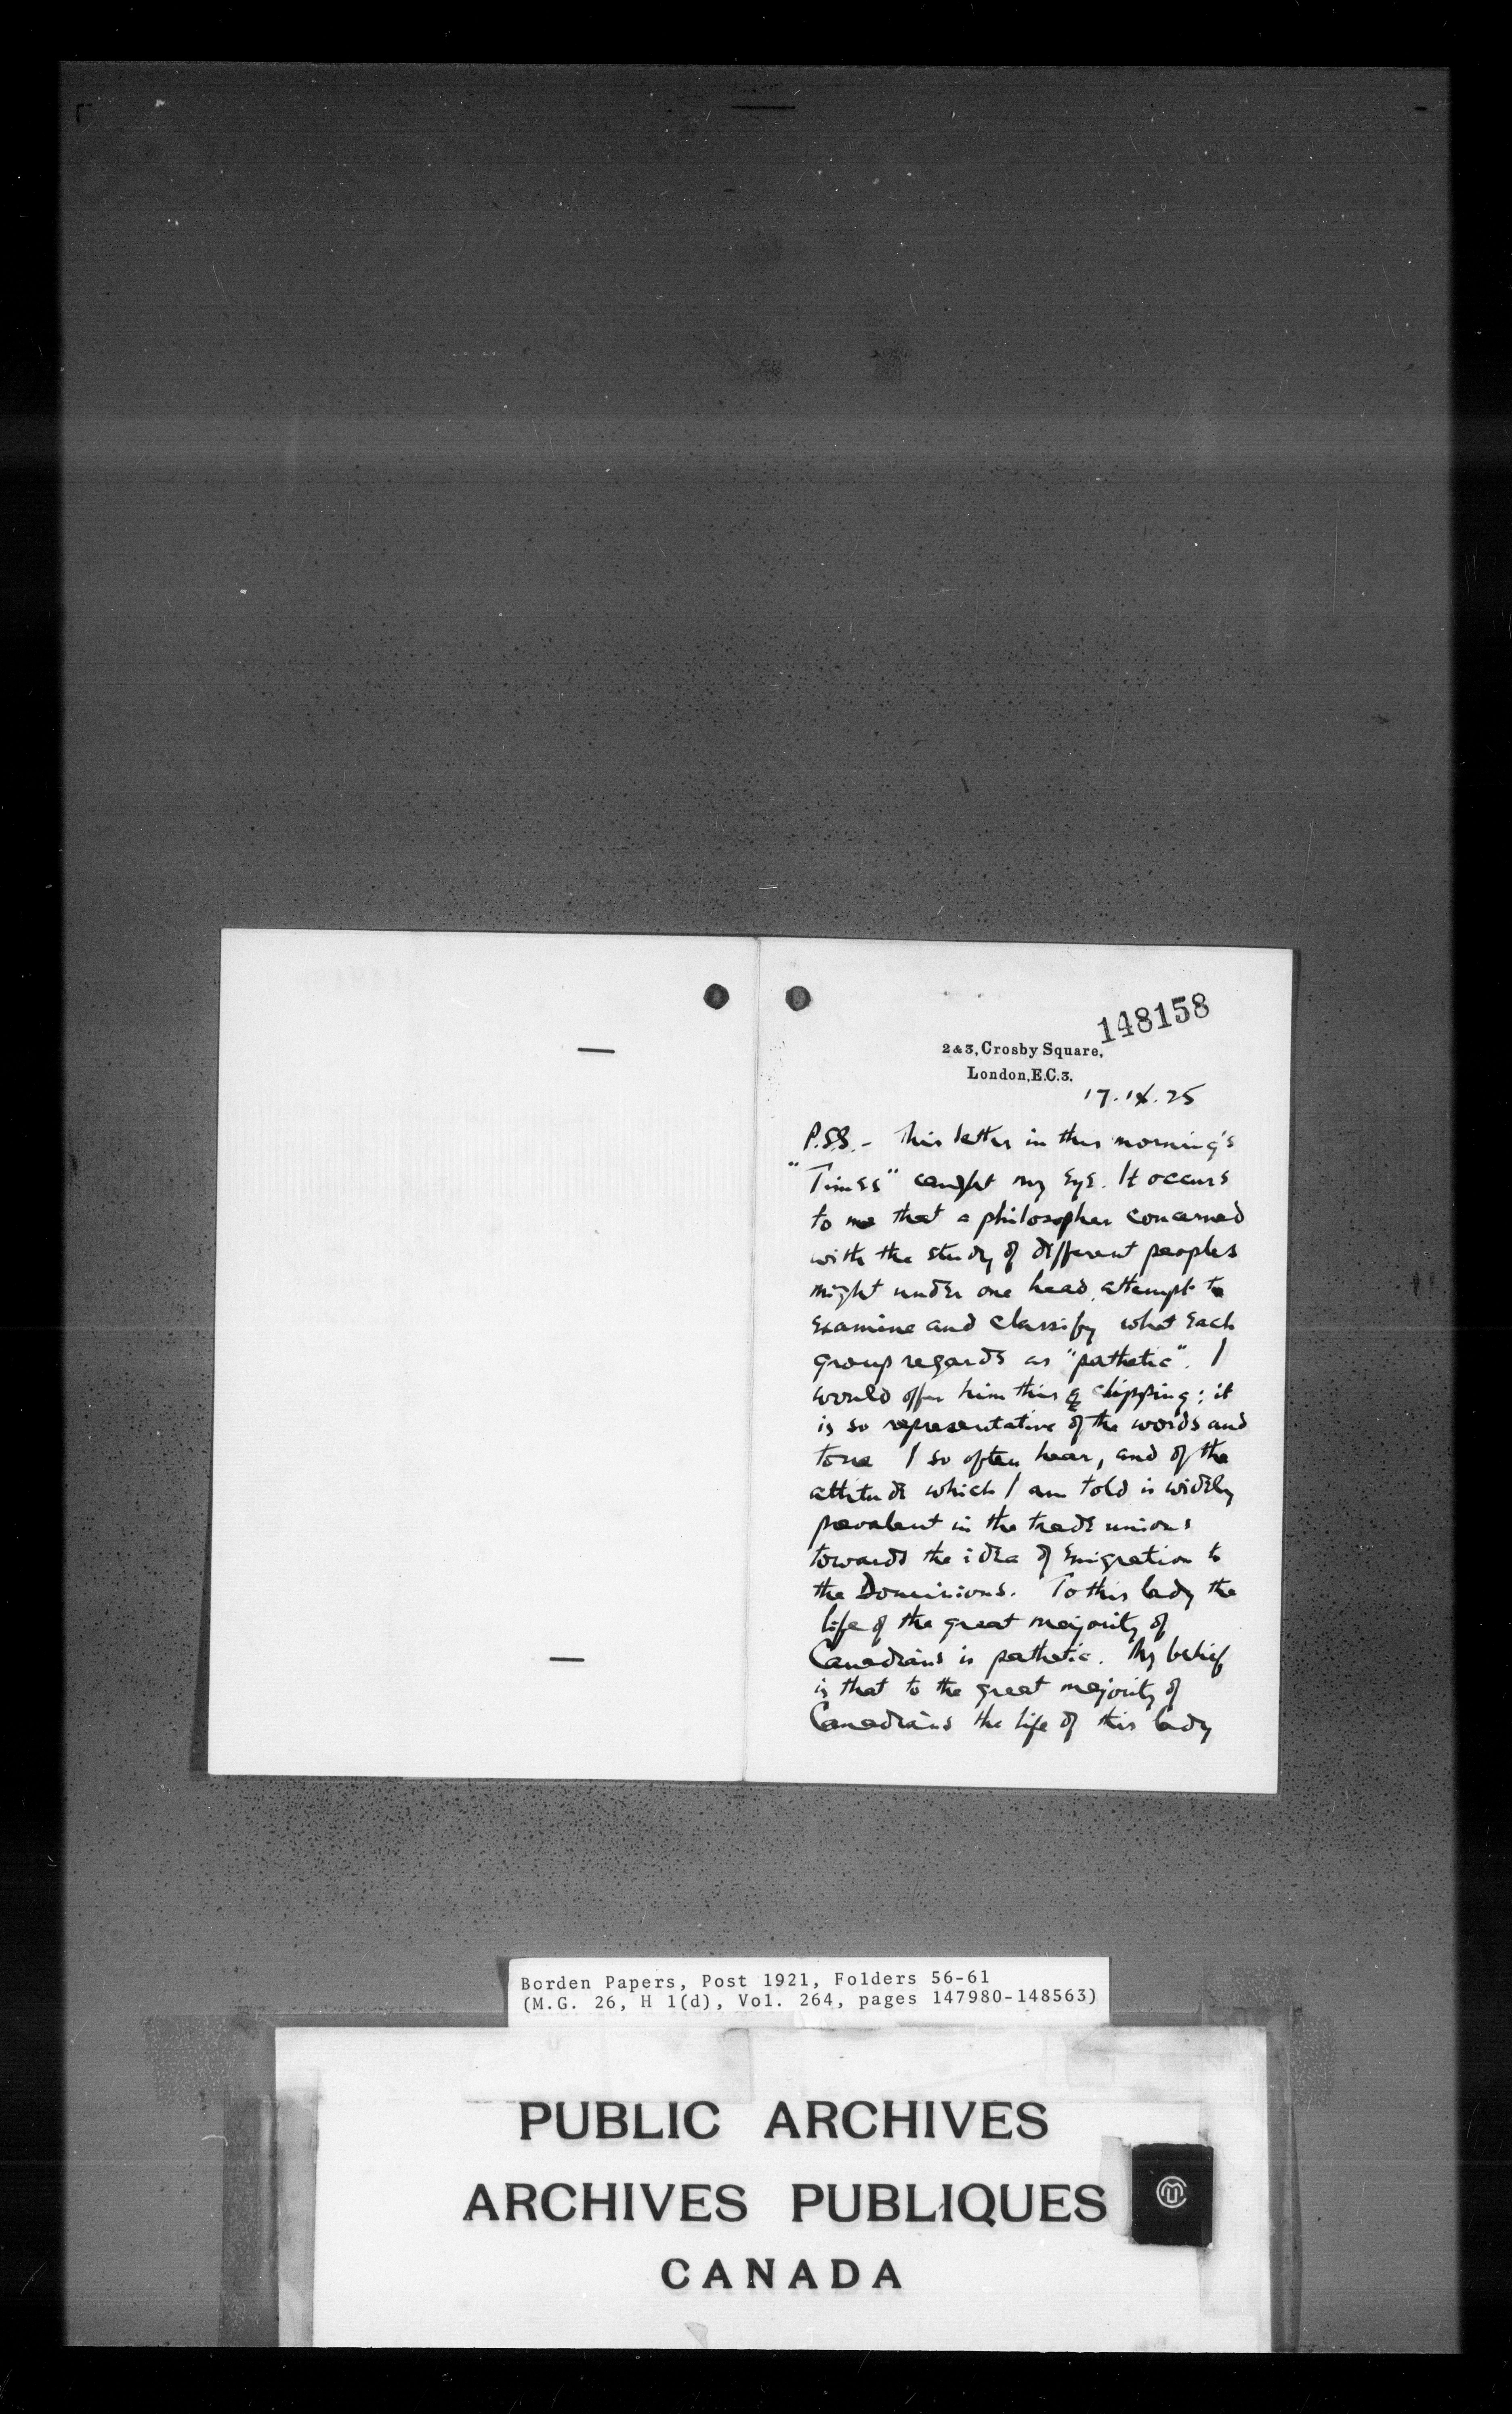 148158
2 & 3, Crosby Square,
London, E.C.3.
17.IX.25
P.SS. - This letter in this morning's
"Times" caught my eye. It occurs
to me that a philosopher concerned
with the study of different peoples
might under one head, attempt to
examine and classify what each
group regards as "pathetic". I
would offer him this clipping; it
is so representative of the words and
tone I so often hear, and of the
attitude which I am told is widely
prevalent in the trade unions
towards the idea of emigration to
the Dominions. To this lady the
life of the great majority of
Canadians is pathetic. My belief
is that to the great majority of
Canadians the life of this lady
Borden Papers, Post 1921, Folders 56-61
(M.G. 26, H 1(d), Vol. 264, pages 147980-148563)
PUBLIC ARCHIVES
ARCHIVES PUBLIQUES
CANADA